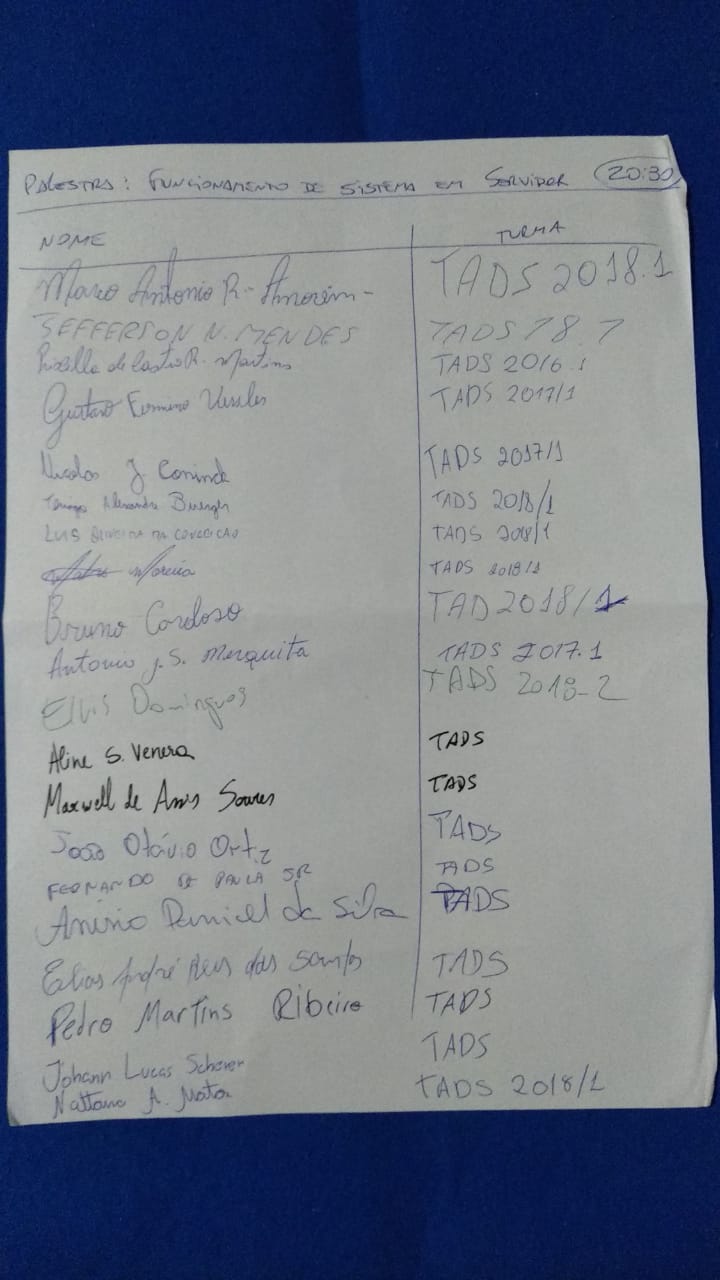 PALESTRA: FUNCIONAMENTO DE SISTEMA EM SERVIDOR 20:30
NOME TURMA
Marco Antonio R. Amorim - TADS 2018.1
JEFFERSON N. MENDES TADS 18.1
de Castro R. Martins TADS 2016.1
Gustavo TADS 2017/1
Nicolas J Coninck TADS 2017/1
TADS 2018/1
LUIS OLIVEIRA DA CONCEICAO TADS 2018/1
Moreira TADS 2018/1
Bruno Cardoso TAD 2018/1
Antonio J. S. Mesquita TADS 2017.1
Elvis Domingues TADS 2018-2
Aline S. Venera TADS
Maxwell de Assis Soares TADS
João Otávio Ortiz TADS
FERNANDO DE PAULA JR TADS
Anísio Daniel da Silva TADS
Elias André Reis dos Santos TADS
Pedro Martins Ribeiro TADS
Johann Lucas TADS
A. TADS 2018/1